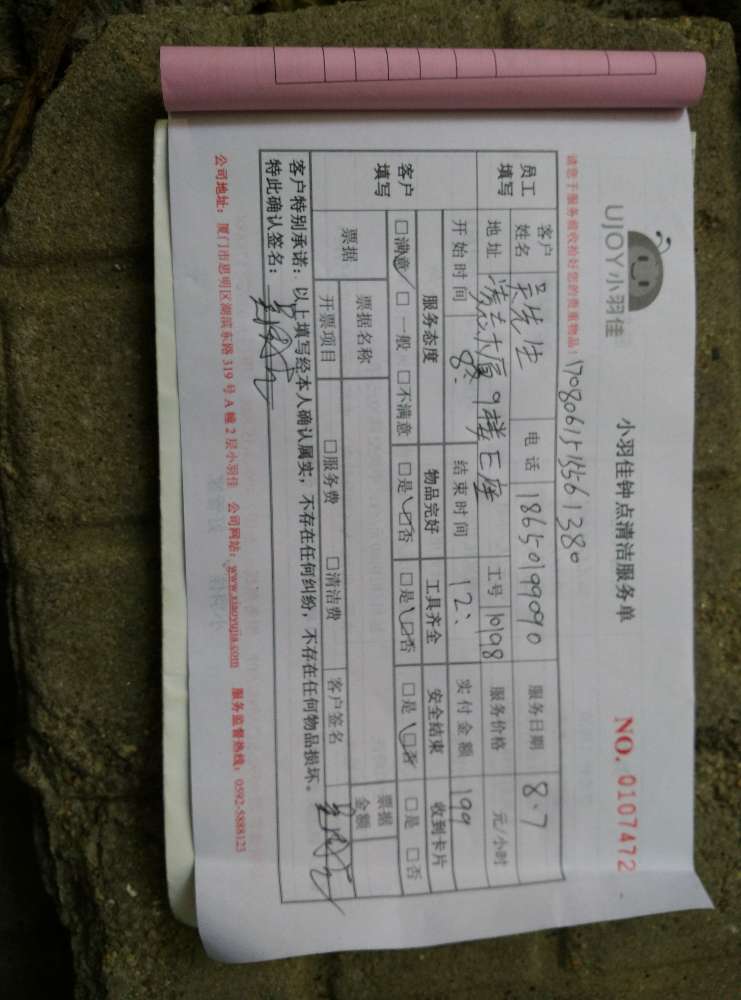 UJOY小羽佳
小羽佳钟点清洁服务单
NO. 0107472
请您于服务前收拾好您的贵重物品! 1708061515561380
员工填写 客户姓名 吴先生 电话 18650199090 服务日期 8.7
地址 9楼E座 工号 1098 服务价格 元/小时
开始时间 8: 结束时间 12: 实付金额 199
客户填写 服务态度 物品完好 工具齐全 安全结束 收到卡片
□满意 □一般 □不满意 □是 □否 □是 □否 □是 □否 □是 □否
票据 票据名称 □服务费 □清洁费 票据金额
开票项目 客户签名
客户特别承诺:以上填写经本人确认属实,不存在任何纠纷,不存在任何物品损坏。
特此确认签名:
公司地址:厦门市思明区湖滨东路 319 号 A 幢 2 层小羽佳 公司网站:www.xiaoyujia.com 服务监督热线:0592-5888123